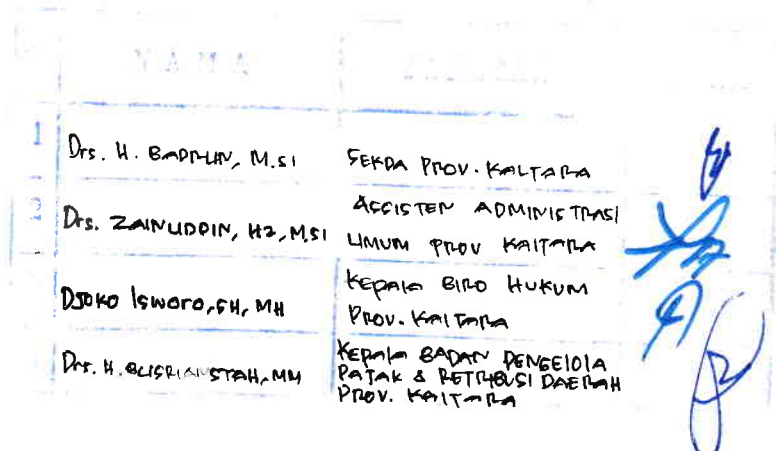 NAMA
1 Drs. H. BADRUN, M.SI SEKDA PROV. KALTARA
2 Drs. ZAINUDDIN, HZ, M.SI ASSISTEN ADMINISTRASI
UMUM PROV KALTARA
DJOKO ISWORO, SH, MH KEPALA BIRO HUKUM
PROV. KALTARA
Drs. H. BUSRIANSYAH, MM KEPALA BADAN PENGELOLA
PAJAK & RETRIBUSI DAERAH
PROV. KALTARA